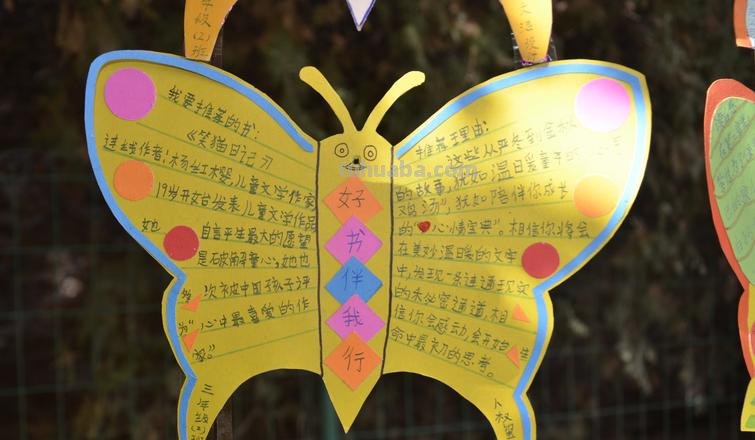 年级(2)班
我要推荐的书:
《笑猫日记》
过线作者:杨红樱,儿童文学作家
19岁开始发表儿童文学作品
她自言平生最大的愿望
是破解童心,她也
次被中国孩子评
为“心中最喜爱的作
家。”
三年级(2)班
好
书
伴
我
行
推荐理由:
这些从严冬到
的故事,犹如温日爱童年
鸡汤”,犹如“陪伴你成长
的“心情宝典”。相信你将会
在美妙温暖的文字
中,发现一条通现实
的秘密通道,相
信你会感动,会开始生
命中最初的思考。